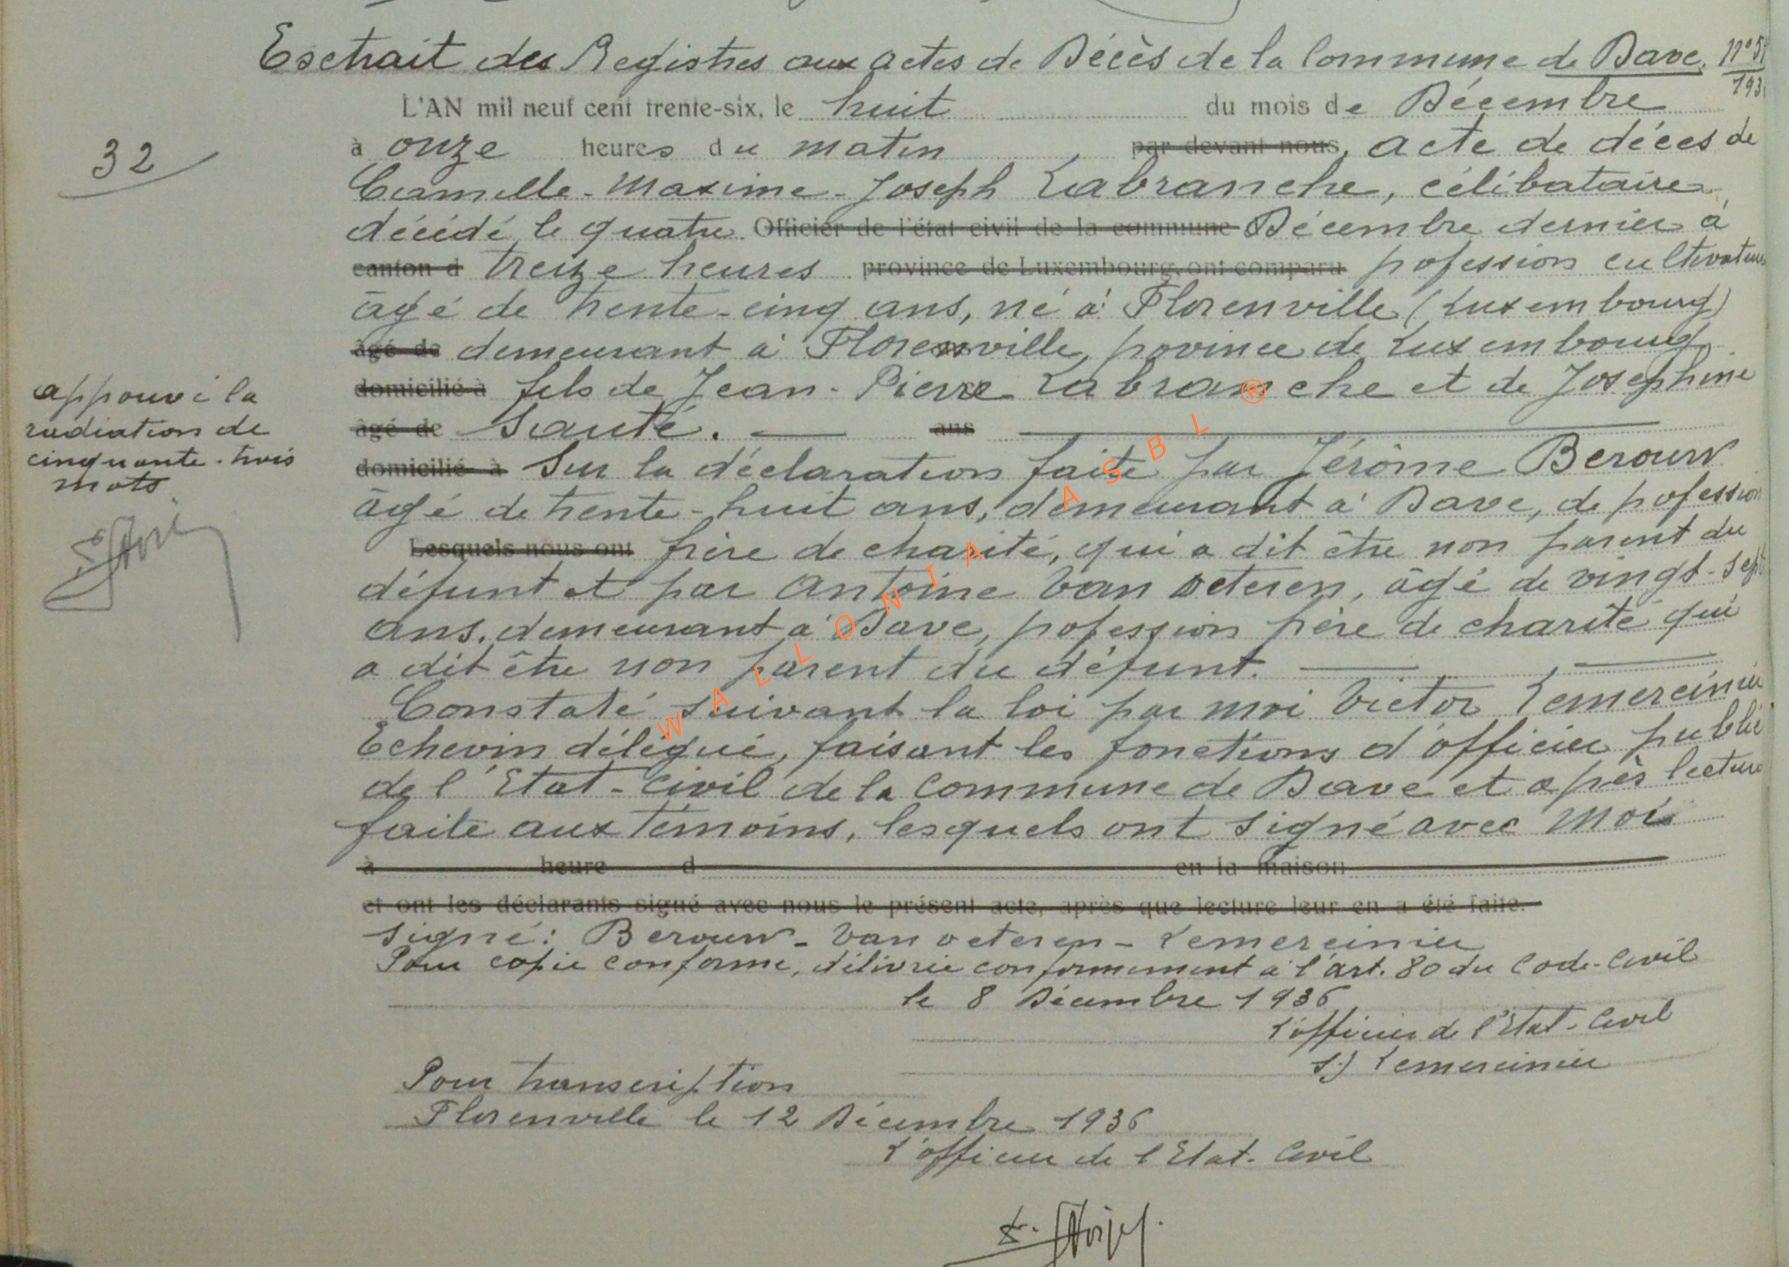 Esctrait des Registres aux actes de Décès de la Commune de Dave. N° 5
193
L'AN mil neuf cent trente-six, le huit du mois de Décembre
32
à onze heures du matin, par devant nous, acte de décès de
Camille-Maxime-Joseph Labranche, célibataire
décédé le quatre Officier de l'état civil de la commune Décembre dernier à
canton d treize heures province de Luxembourg, ont comparu profession cultivateur
âgé de trente-cinq ans, né à Florenville (Luxembourg)
âgé de demeurant à Florenville, province de Luxembourg
domicilié à fils de Jean-Pierre Labranche et de Joséphine
âgé de Santé. ans
domicilié à Sur la déclaration faite par Jérôme Berouw
approuvé la
radiation de
cinquante-trois
mots
âgé de trente-huit ans, demeurant à Dave, de profession
Lesquels nous ont frère de charité, qui a dit être non parent du
défunt et par Antoine Van Oeteren, âgé de vingt-sept
ans, demeurant à Dave, profession frère de charité qui
a dit être non parent du défunt.
Constaté suivant la loi par moi Victor Lemercinier
Echevin délégué, faisant les fonctions d'officier public
de l'Etat-Civil de la Commune de Dave et après lecture
faite aux témoins, lesquels ont signé avec moi
à heure d en la maison
et ont les déclarants signé avec nous le présent acte, après que lecture leur en a été faite.
Signé: Berouw - Van Oeteren - Lemercinier
Pour copie conforme, délivrée conformément à l'art. 80 du Code-Civil
le 8 Décembre 1936
L'officier de l'Etat-Civil
S.) Lemercinier
Pour transcription
Florenville le 12 Décembre 1936
L'officier de l'Etat-Civil
WALLONIA ASBL ®